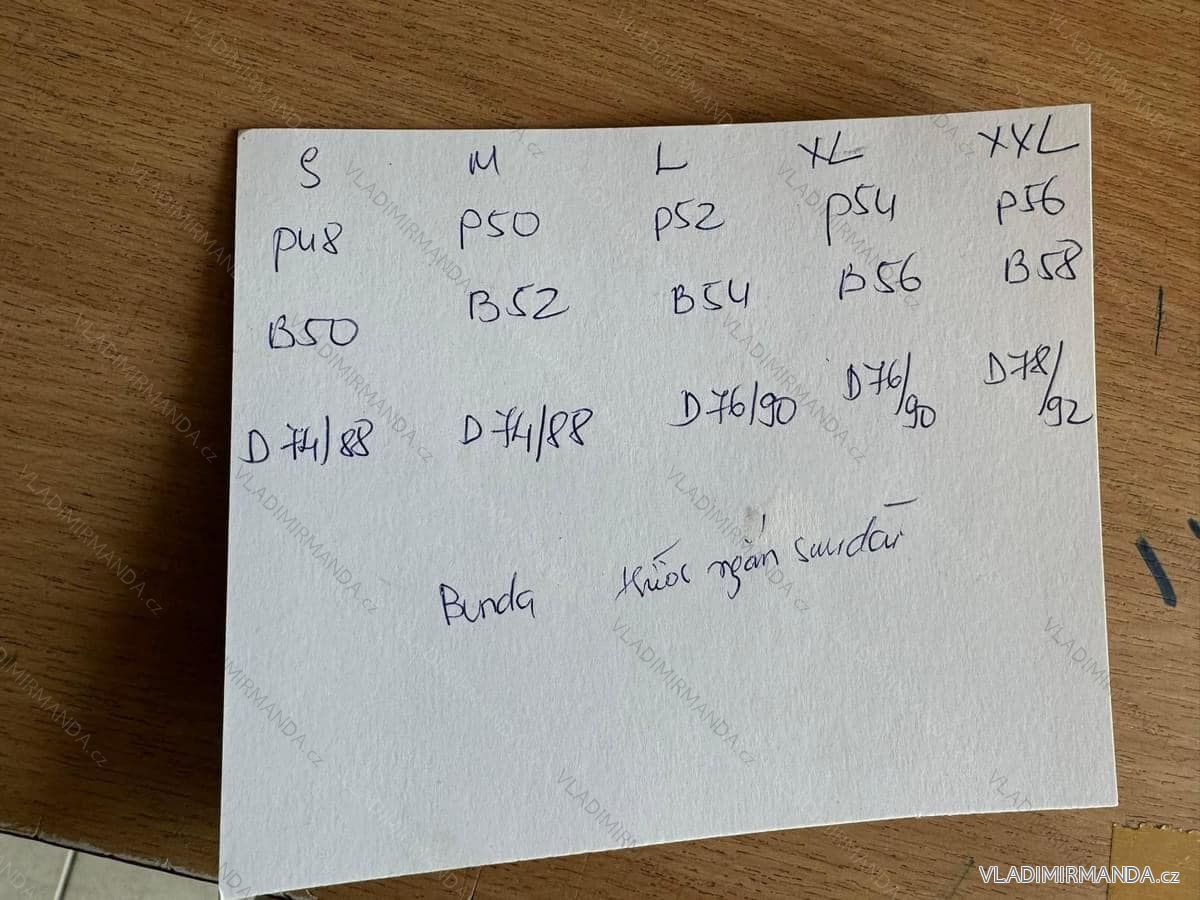 S M L XL XXL
P48 P50 P52 P54 P56
B50 B52 B54 B56 B58
D74/88 D74/88 D76/90 D76/90 D78/92
Bunda trước ngắn sau dài
VLADIMIRMANDA.cz